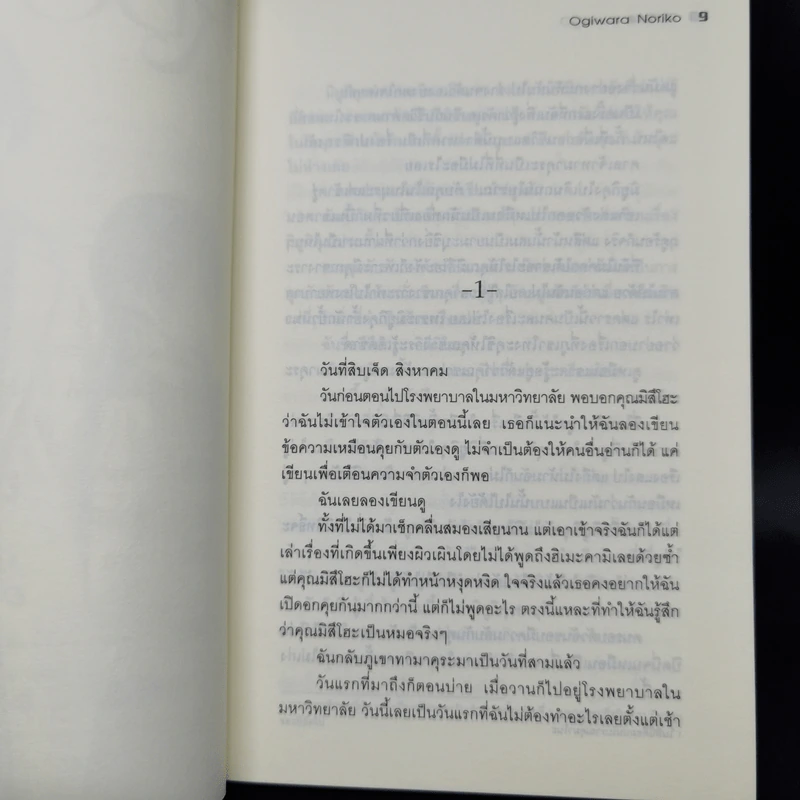 Ogiwara Noriko 9
-1-
วันที่สิบเจ็ด สิงหาคม
วันก่อนตอนไปโรงพยาบาลในมหาวิทยาลัย พอบอกคุณมิสึโฮะ
ว่าฉันไม่เข้าใจตัวเองในตอนนี้เลย เธอก็แนะนำให้ฉันลองเขียน
ข้อความเหมือนคุยกับตัวเองดู ไม่จำเป็นต้องให้คนอื่นอ่านก็ได้ แค่
เขียนเพื่อเตือนความจำตัวเองก็พอ
ฉันเลยลองเขียนดู
ทั้งที่ไม่ได้มาเช็กคลื่นสมองเสียนาน แต่เอาเข้าจริงฉันก็ได้แต่
เล่าเรื่องที่เกิดขึ้นเพียงผิวเผินโดยไม่ได้พูดถึงฮิเมะคามิเลยด้วยซ้ำ
แต่คุณมิสึโฮะก็ไม่ได้ทำหน้าหงุดหงิด ใจจริงแล้วเธอคงอยากให้ฉัน
เปิดอกคุยกันมากกว่านี้ แต่ก็ไม่พูดอะไร ตรงนี้แหละที่ทำให้ฉันรู้สึก
ว่าคุณมิสึโฮะเป็นหมอจริงๆ
ฉันกลับภูเขาทามาคุระมาเป็นวันที่สามแล้ว
วันแรกที่มาถึงก็ตอนบ่าย เมื่อวานก็ไปอยู่โรงพยาบาลใน
มหาวิทยาลัย วันนี้เลยเป็นวันแรกที่ฉันไม่ต้องทำอะไรเลยตั้งแต่เช้า